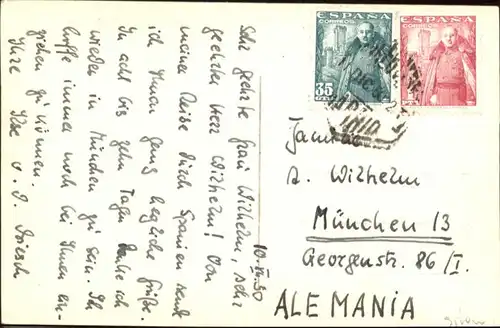 10.IV.50
Sehr geehrte Frau Wilhelm, sehr
geehrter Herr Wilhelm! Von
meiner Reise durch Spanien sende
ich Ihnen ganz herzliche Grüße.
In acht bis zehn Tagen hoffe ich
wieder in München zu sein. Ich
hoffe immer noch bei Ihnen ein-
ziehen zu können.
Ihre Ilse v. d. Driesch
ESPAÑA
CORREOS
35
CTS
ESPAÑA
CORREOS
Familie
A. Wilhelm
München 13
Georgenstr. 86/I.
ALEMANIA